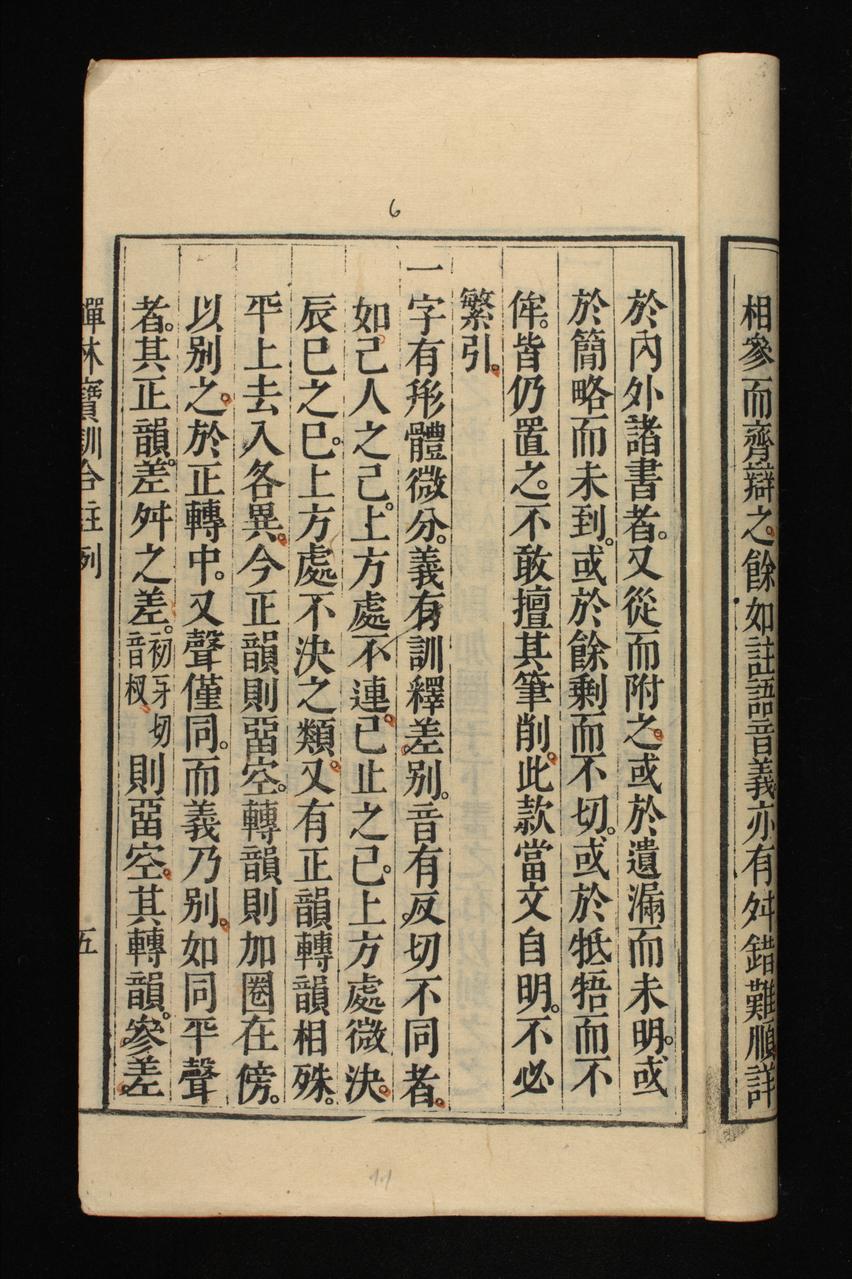 相參而齊辯之餘如註語音義亦有舛錯難順詳
6
於內外諸書者。又從而附之。或於遺漏而未明。或
於簡略而未到。或於餘剩而不切。或於牴牾而不
侔。皆仍置之。不敢擅其筆削。此款當文自明。不必
繁引。
一字有形體微分。義有訓釋差別。音有反切不同者。
如己人之己。上方處不連。已止之已。上方處微決。
辰巳之巳。上方處不決之類。又有正韻轉韻相殊。
平上去入各異。今正韻則畱空。轉韻則加圈在傍。
以别之。於正轉中。又聲僅同。而義乃别。如同平聲
者。其正韻。差舛之差。初牙切音杈則畱空。其轉韻。參差
禪林寶訓合註 例 五
11